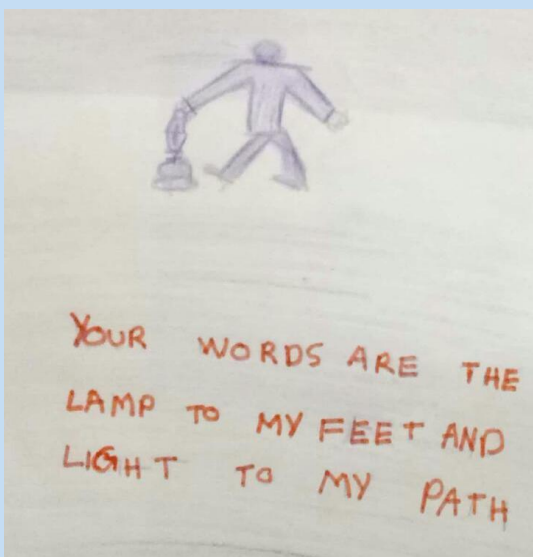 YOUR WORDS ARE THE
LAMP TO MY FEET AND
LIGHT TO MY PATH